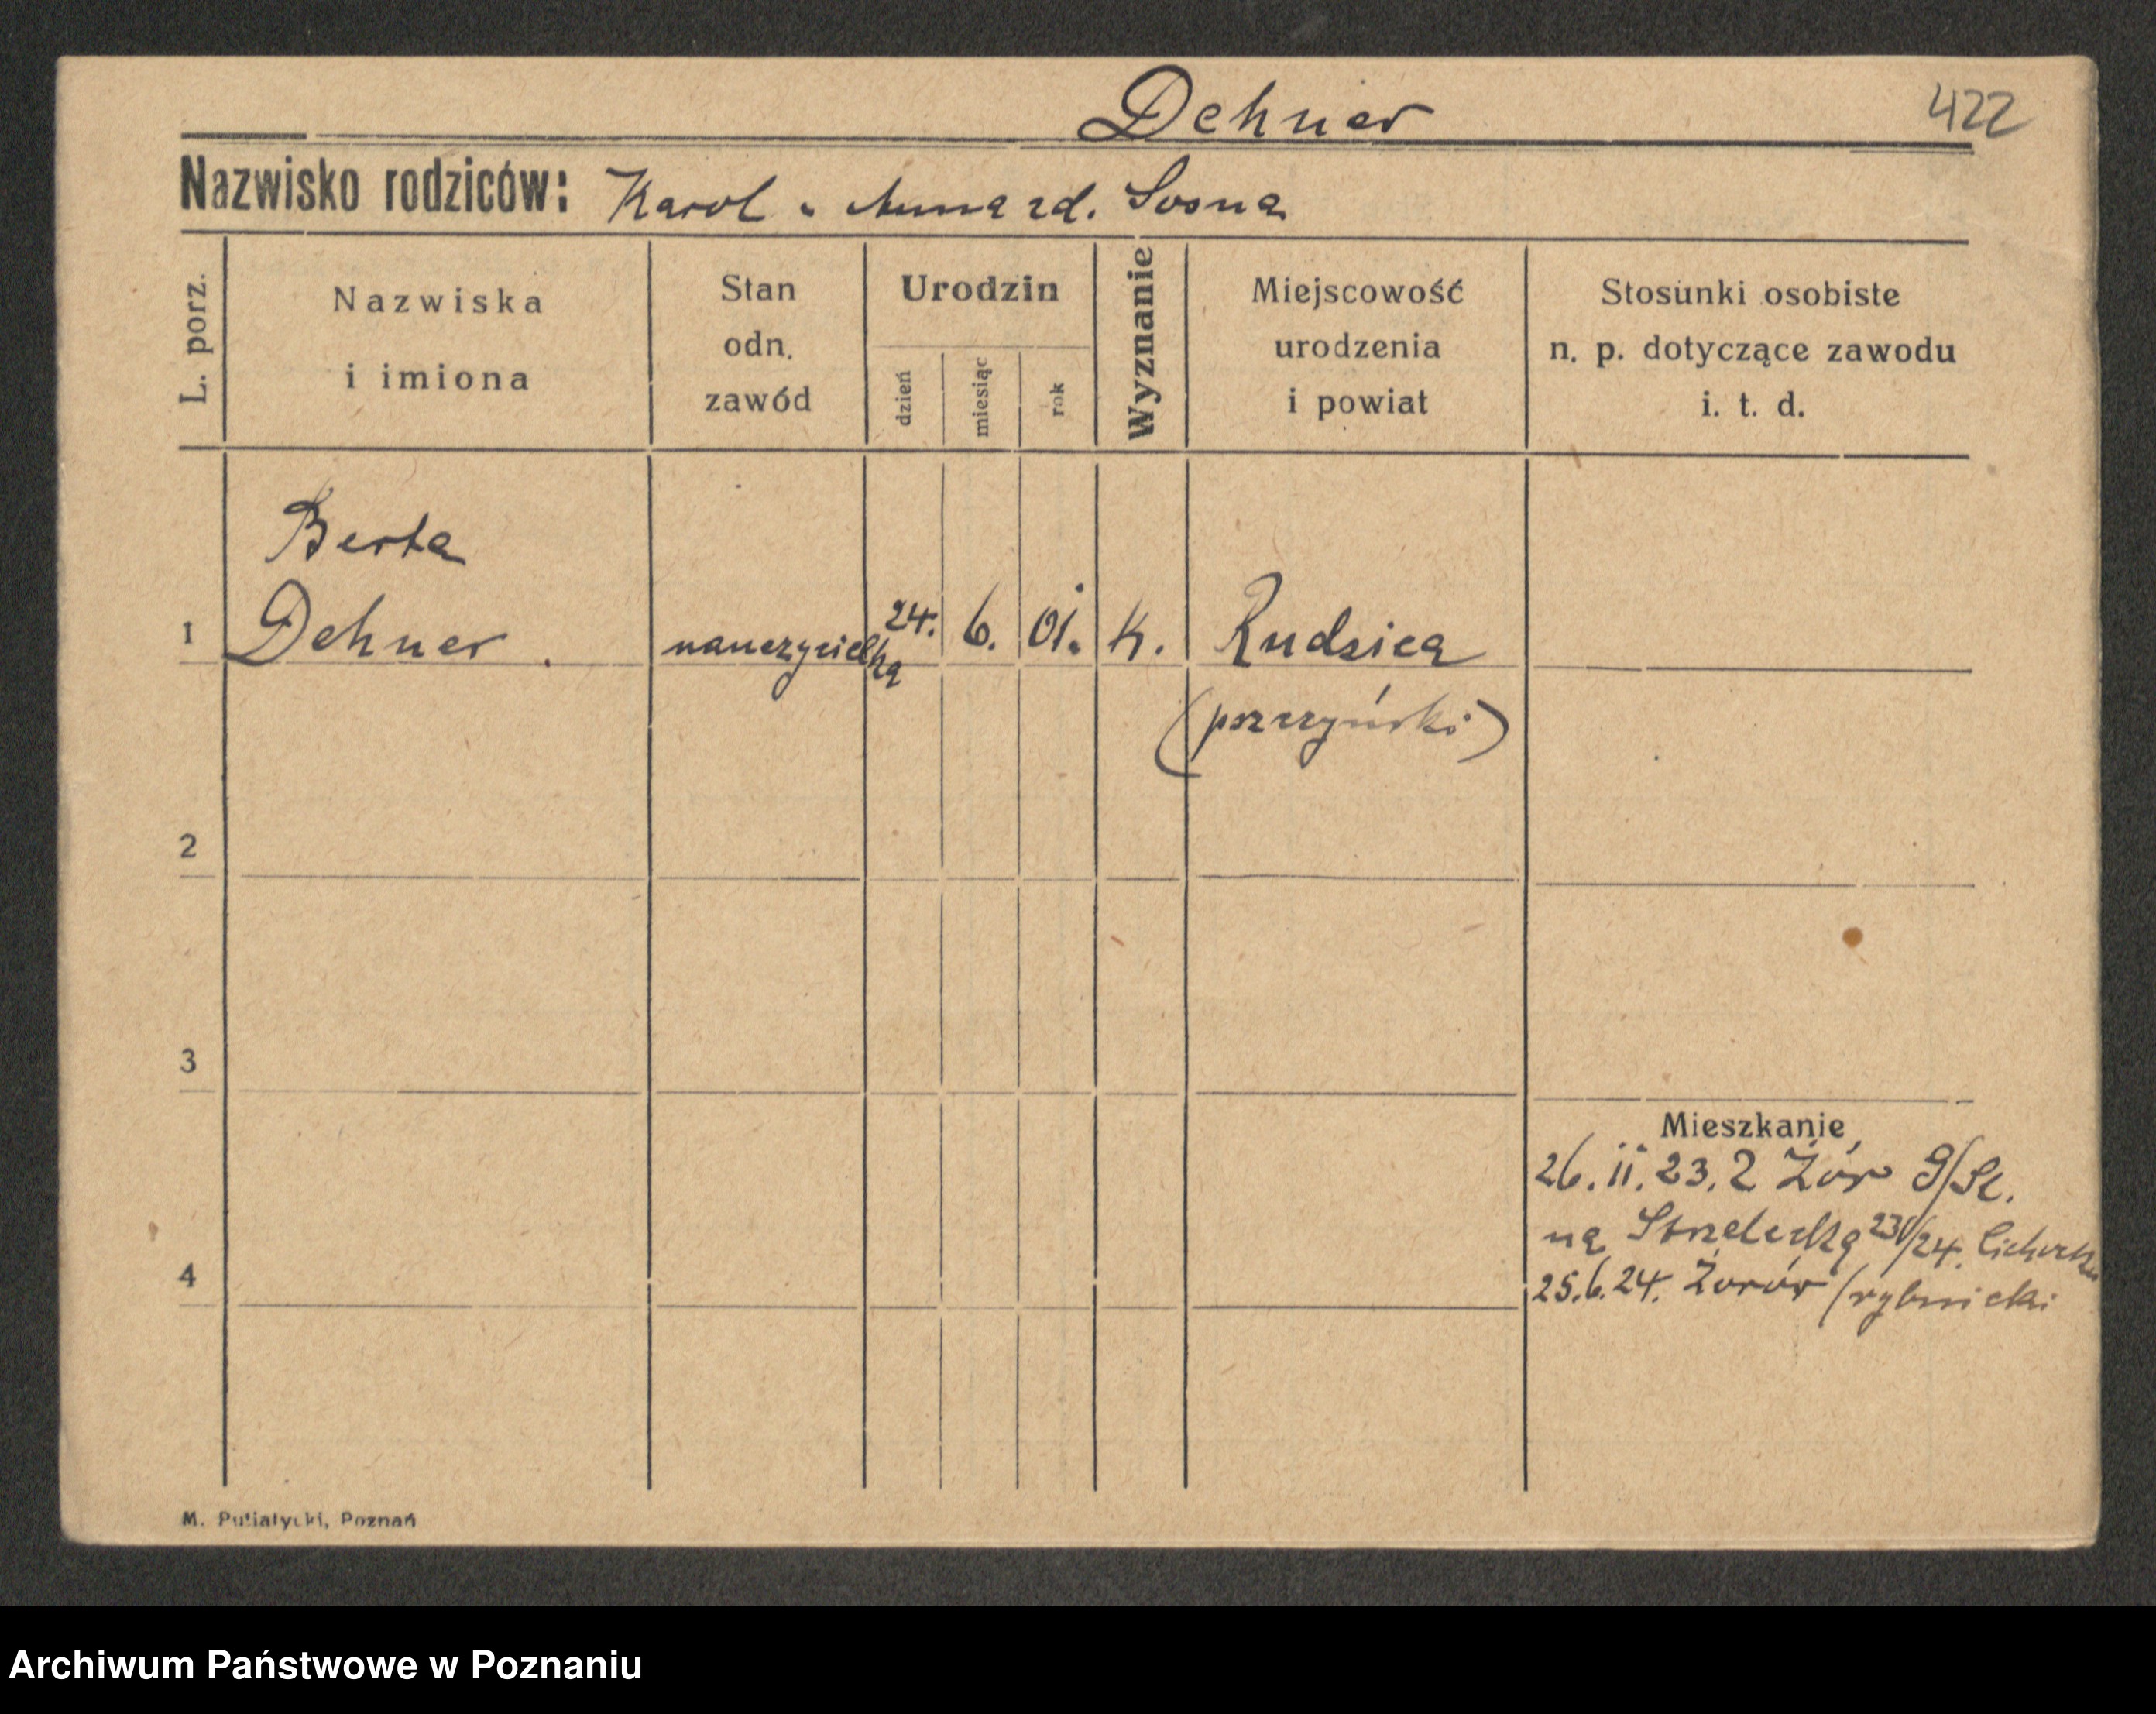 Dehner
422
Nazwisko rodziców: Karol i Anna zd. Sosna
L. porz.
Nazwiska
i imiona
Stan
odn.
zawód
Urodzin
dzień
miesiąc
rok
Wyznanie
Miejscowość
urodzenia
i powiat
Stosunki osobiste
n. p. dotyczące zawodu
i. t. d.
Berta
1 Dehner. nauczycielka 24. 6. 01. k. Rudzica
(pszczyński)
2
3
Mieszkanie
26. 11. 23. z Żor G/Śl.
na Strzelecką 23/24.
4 25.6.24. Żorów (rybnicki
M. Putiatycki, Poznań
Archiwum Państwowe w Poznaniu